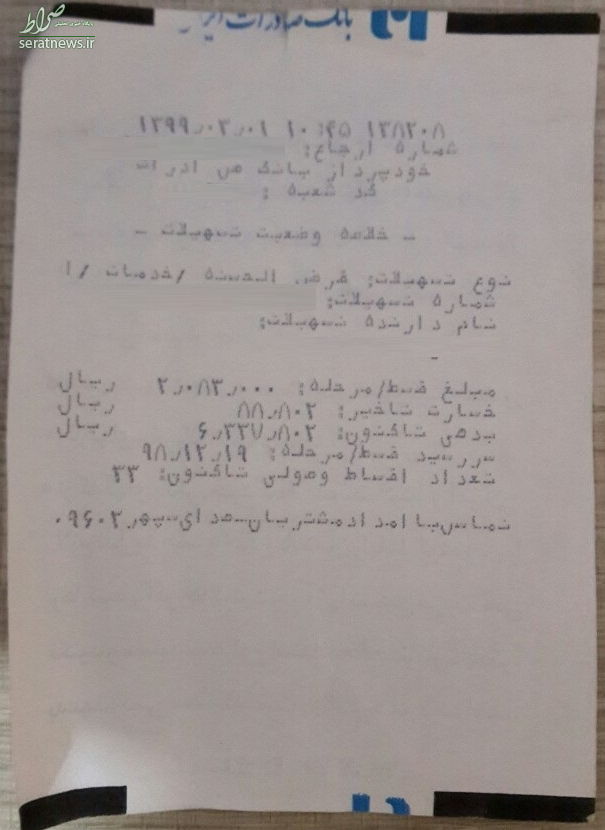 صراط
پایگاه خبری تحلیلی
seratnews.ir
بانک صادرات ایران
۱۳۹۹٫۰۲٫۰۱ ۱۰:۴۵ ۱۳۸۲۰۸
شماره ارجاع:
خودپرداز بانک ص ادرات
کد شعبه :
- خلاصه وضعیت تسهیلات -
نوع تسهیلات: قرض الحسنه /خدمات /ا
شماره تسهیلات:
نام دارنده تسهیلات:
-
مبلغ قسط/مرحله: ۲٫۰۸۳٫۰۰۰ ریال
خسارت تاخیر: ۸۸٫۸۰۲ ریال
بدهی تاکنون: ۶٫۳۳۷٫۸۰۲ ریال
سررسید قسط/مرحله: ۹۸٫۱۲٫۱۹
تعداد اقساط وصولی تاکنون: ۳۳
تماس با امداد مشتریان-صدای سپهر ۰۹۶۰۲